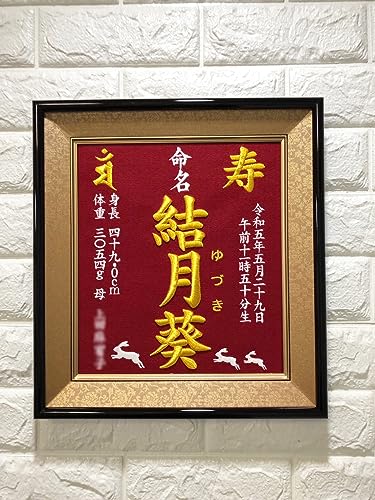 寿
令和五年五月二十九日
午前十一時五十分生
命名
結月葵
ゆづき
身長 四十九・0cm
体重 三〇五四g
母